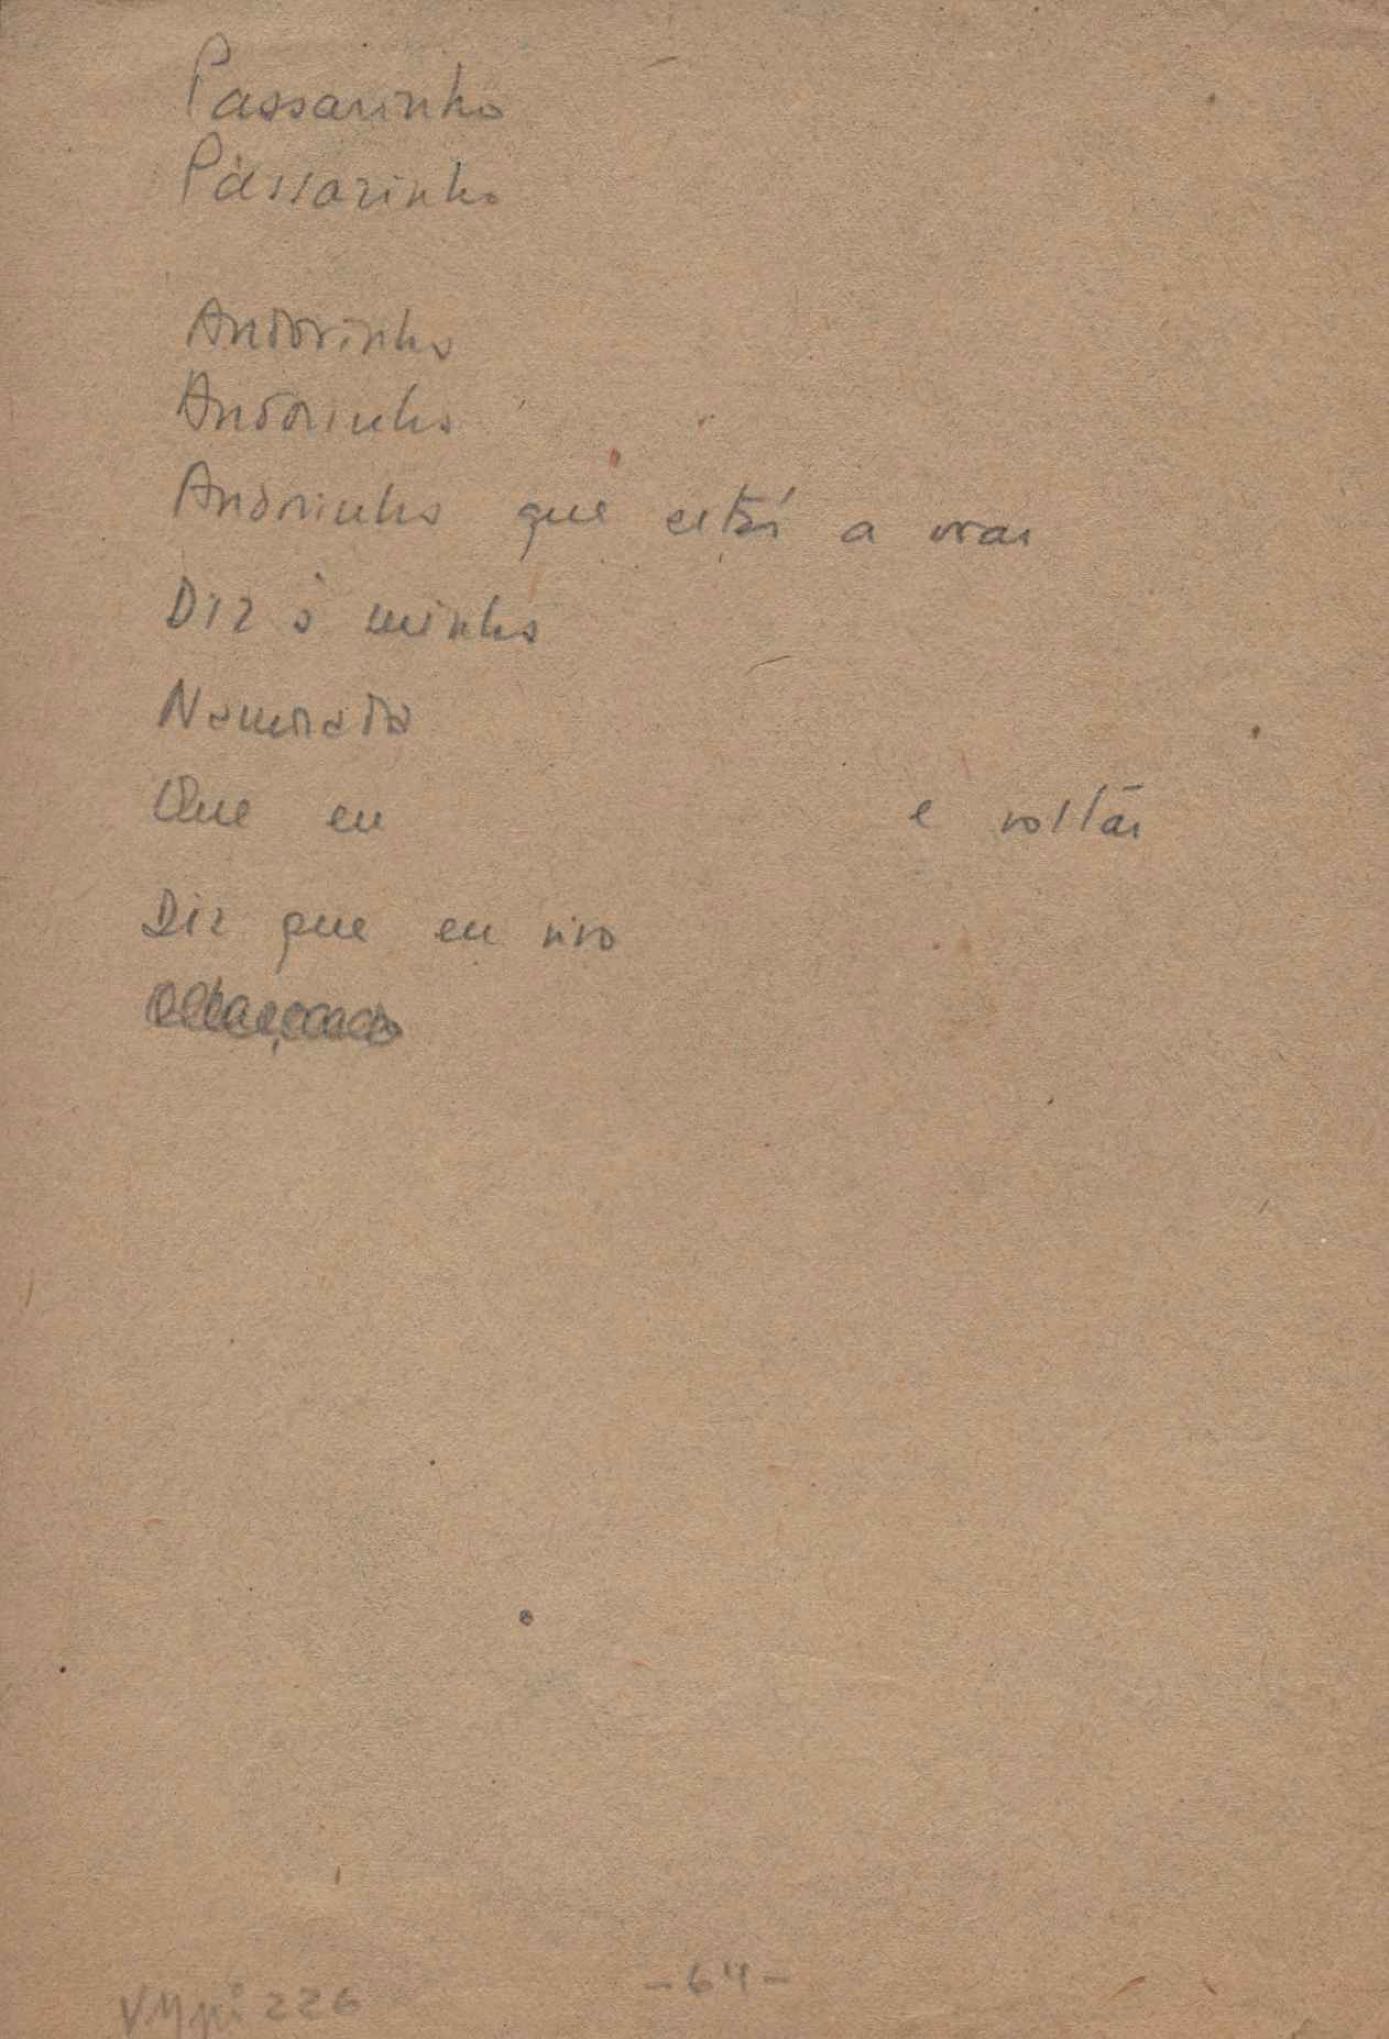 Passarinho
Passarinho
Andorinha
Andorinha
Andorinha que está a voar
Diz à minha
Namorada
Que eu e voltar
Diz que eu vivo
-64-
226